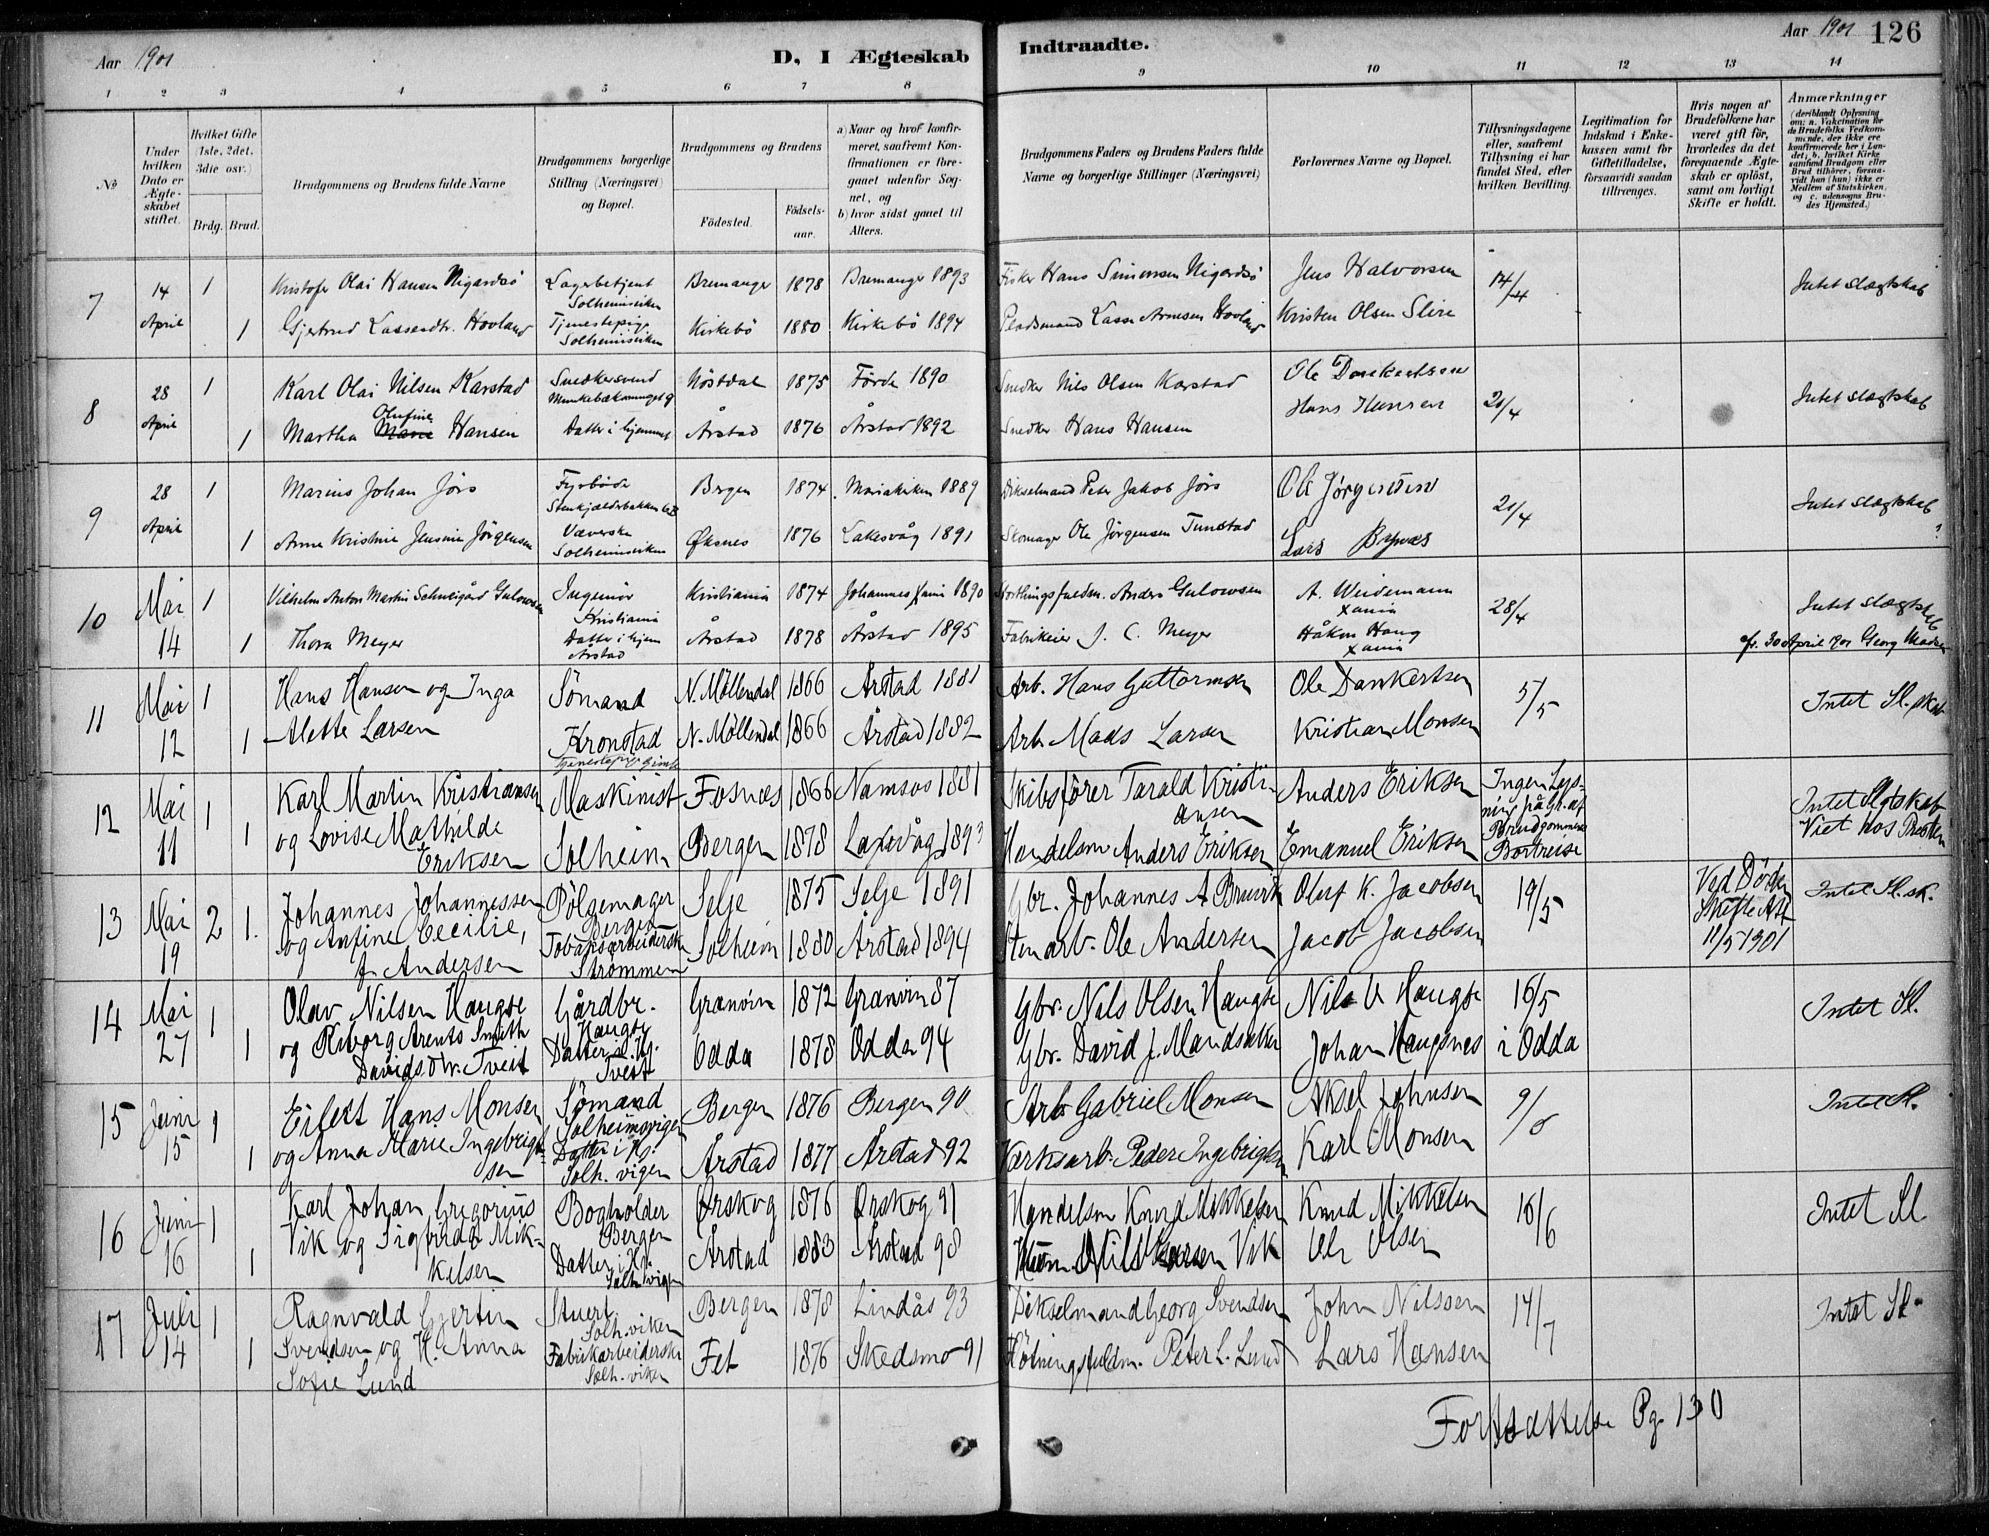 Aar 1901
D, I Ægteskab Indtraadte.
Aar 1901 126
1 2 3 4 5 6 7 8 9 10 11 12 13 14
No
Under hvilken Dato er Ægteskabet stiftet.
Hvilket Gifte (1ste, 2det, 3die osv.)
Brdg. Brud.
Brudgommens og Brudens fulde Navne
Brudgommens borgerlige Stilling (Næringsvei) og Bopæl.
Brudgommens og Brudens
Födested.
Födselsaar.
a) Naar og hvor konfirmeret, saafremt Konfirmationen er foregaaet udenfor Sognet, og
b) hvor sidst gaaet til Alters.
Brudgommens Faders og Brudens Faders fulde Navne og borgerlige Stillinger (Næringsvei)
Forlovernes Navne og Bopæl.
Tillysningsdagene eller, saafremt Tillysning ei har fundet Sted, efter hvilken Bevilling.
Legitimation for Indskud i Enkekassen samt for Giftetilladelse, forsaavidt saadan tiltrænges.
Hvis nogen af Brudefolkene har været gift för, hvorledes da det foregaaende Ægteskab er oplöst, samt om lovligt Skifte er holdt.
Anmærkninger
(deriblandt Oplysning om: a. Vaksination for de Brudefolks Vedkommende, der ikke ere konfirmerede her i Landet; b. hvilket Kirkesamfund Brudgom eller Brud tilhörer, forsaavidt han (hun) ikke er Medlem af Statskirken, og c. udensogns Brudes Hjemsted.)
7 14 April 1 Kristofer Olai Hansen Nigardsö Lagerbetjent Solheimsviken Bremanger 1878 Bremanger 1893 Fisker Hans Simonsen Nigardsö Jens Halvorsen 14/4 Intet slægtskab
1 Gjertrud Lassesdtr. Hovland Tjenestepige Solheimsviken Kirkebö 1880 Kirkebö 1894 Pladsmand Lasse Arnesen Hovland Kristen Olsen Slire
8 28 April 1 Karl Olai Nilsen Karstad Snedkersvend Nöstdal 1875 Förde 1890 Snedker Nils Olsen Karstad Ole Dankertsen 21/4 Intet slægtskab
1 Martha Olufine Hansen Datter i hjemmet Årstad 1876 Årstad 1892 Snedker Hans Hansen Hans Hansen
9 28 April 1 Marius Johan Jörs Fyrböder Bergen 1874 Mariakirken 1889 Dikselmand Peter Jakob Jörs Ole Jörgensen 21/4 Intet slægtskab
1 Anne Kristine Jensine Jörgensen Væverske Solheimsviken Øksnes 1876 Laksevåg 1891 Skomager Ole Jörgensen Tunstad Lars Bynes
10 Mai 14 1 Vilhelm Anton Martin Schweigård Gulowsen Ingeniör Kristiania Kristiania 1874 Johannes Xania 1890 Storthingsfuldm. Anders Gulowsen A. Weidemann Xania 28/4 Intet slægtskab
1 Thora Meyer Datter i hjem Årstad Årstad 1878 Årstad 1895 Fabrikeier J. C. Meyer Håkon Haug Xania 30 April 901 Georg
11 Mai 12 1 Hans Hansen og Inga Sömand N. Möllendal 1866 Årstad 1881 Arb. Hans Guttormsen Ole Dankertsen 5/5 Intet Sl.skab
1 Alette Larsen Kronstad N. Möllendal 1866 Årstad 1882 Arb. Mads Larsen Kristian Monsen
12 Mai 11 1 Karl Martin Kristiansen Maskinist Fosnæs 1866 Namsos 1881 Skibsförer Tarald Kristiansen Anders Eriksen Ingen Lysning på Gr. af Brudgommens Bortreise Intet Slgtskab
1 og Lovise Mathilde Eriksen Solheim Bergen 1878 Laxevåg 1893 Handelsm Anders Eriksen Emanuel Eriksen Viet hos Presten
13 Mai 19 2 1. Johannes Johannessen Pölsemager Bergen Selje 1875 Selje 1891 Gbr. Johannes A Brusvik Oluf K. Jacobsen 19/5 Ved Döden Skifte Att 11/5 1901 Intet Sl.sk.
og Anfine Cecilie, J. Andersen Tobaksarbeiderske Strömmen Solheim 1880 Årstad 1894 Stenarb. Ole Andersen Jacob Jacobsen
14 Mai 27 1 Olav Nilsen Haugse Gårdbr. Haugse Granvin 1872 Granvin 87 Gbr. Nils Olsen Haugse Nils O Haugse 16/5 i Odda Intet Sl.
1 og Riborg Arents Smith Davidsdtr. Tveit Datter i Hj. Tveit Odda 1878 Odda 94 Gbr. David J. Mandsåker Johan Haugsnes
15 Juni 15 1 Eilert Hans Monsen Sömand Solheimsvigen Bergen 1876 Bergen 90 Arb Gabriel Monsen Aksel Johnsen 9/6 Intet Sl.
1 og Anna Marie Ingebrigtsen Datter i Hj. Solh. vigen Årstad 1877 Årstad 92 Værksarb. Peder Ingebrigtsen Karl Monsen
16 Juni 16 1 Karl Johan Gregorius Bogholder Bergen Ørskog 1876 Ørskog 91 Handelsm Knud Mikkelsen Knud Mikkelsen 16/6 Intet Sl
1 Vik og Sigfride Mikkelsen Datter i Hj. Solh. vigen Årstad 1883 Årstad 98 Nils Larsen Vik Ole Olsen
17 Juli 14 1 Ragnvald Gjertin Stuert Solh. viken Bergen 1878 Lindås 93 Dikselmand Georg Svendsen John Nilssen 14/7 Intet Sl.
1 Svendsen og H. Anna Sofie Lund Fabrikarbeiderske Solh. viken Fet 1876 Skedsmo 91 Fløtningsfuldm. Peter L. Lund Lars Hansen
Fortsættelse Pg. 130